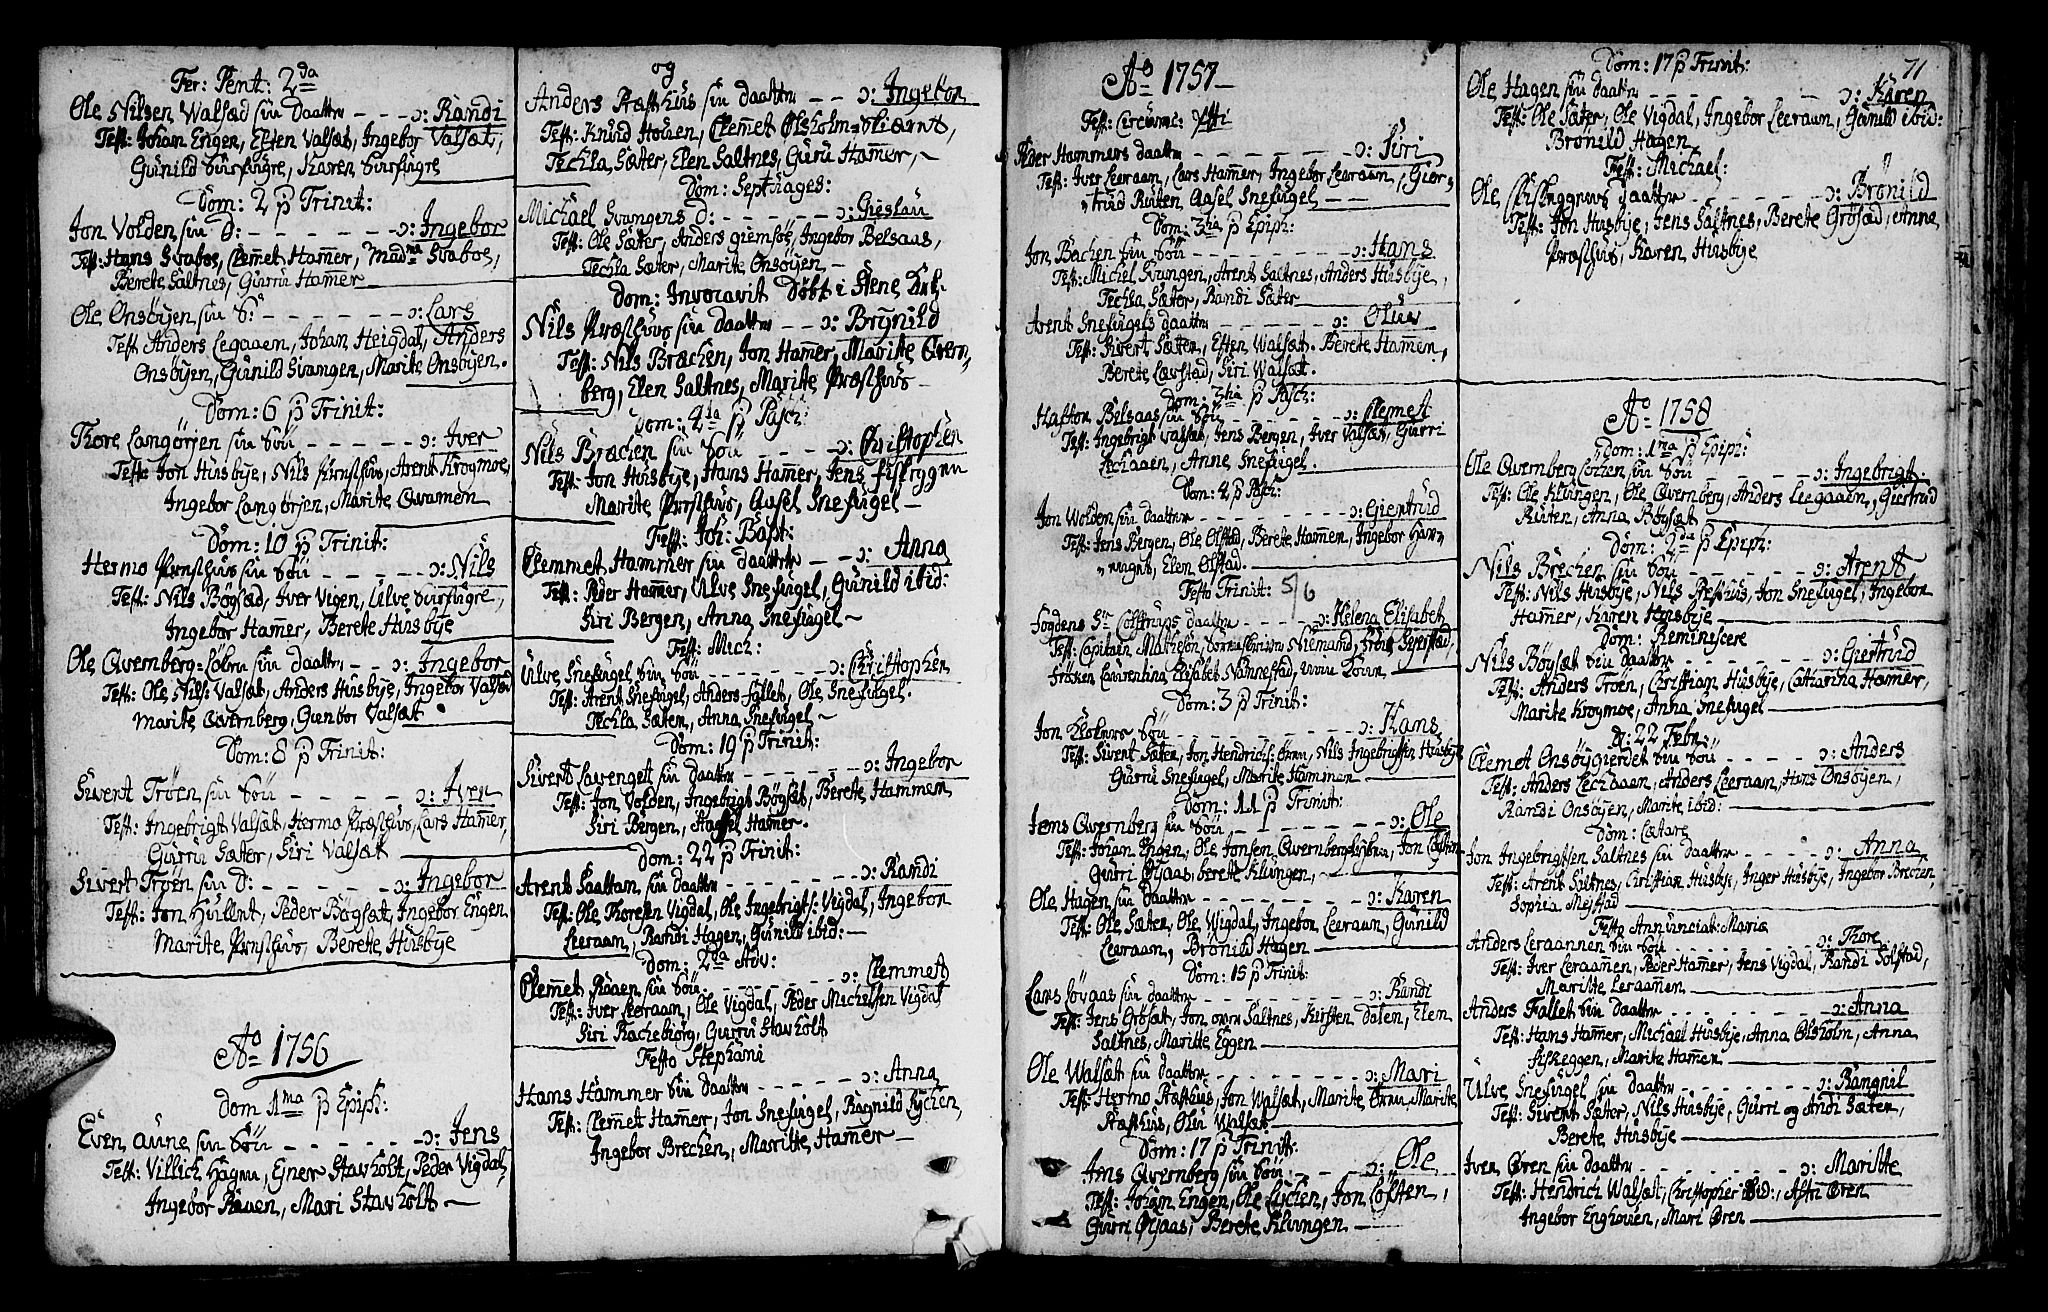 Fer: Pent: 2da
Ole Nilsen Walsæd sin Daatter - - - ɔ: Randi
Test: Johan Engen, Esten Valsæt, Ingebor Valsæt,
Gunild Burfugre, Karen Burfugre
Dom: 2 p Trinit:
Jon Volden sin D: - - - - - - - ɔ: Ingebor
Test: Hans Svaboe, Clemet Ham̄er, Madme Svaboe,
Berete Saltnes, Gurru Ham̄er
Ole Onsøyen sin S: - - - - - - ɔ: Lars
Test Anders Legaaen, Johan Heigdal, Anders
Onsøyen, Gunild Svangen, Marite Onsøyen.
Dom: 6 p Trinit:
Thore Langørjen sin Søn - - - - - ɔ: Iver
Test: Jon Husbye, Nils Præsthus, Arent Krogmoe,
Ingebor Langørjen, Marite Qvamen
Dom: 10 p Trinit:
Hermo Præsthus sin Søn - - - - - ɔ: Nils
Test: Nils Bøgsæd, Iver Vigen, Ulve Burfugre,
Ingebor Ham̄er, Berete Husbye
Ole Qvernberg= sin Daatter - - ɔ: Ingebor
Test: Ole Nils: Valsæt, Anders Husbye, Ingebor Valsæd
Marite Qvernberg, Gunbor Valsæt
Dom: 8 p Trinit:
Sivert Trøen sin Søn - - - - - ɔ: Iver
Test: Ingebrigt Valsæt, Hermo Præsthus, Lars Ham̄er,
Gurru Sæter, Siri Valsæt
Sivert Trøen sin D: - - - - - - ɔ: Ingebor
Test: Jon Hullnt, Peder Bøgsæt, Ingebor Engen
Marite Præsthus, Berete Husbye
Ao 1756
Dom 1ma p Epiph:
Even Aune sin Søn - - - - - - ɔ: Jens
Test: Villich Hagen, Ejner Stavholt, Peder Vigdal,
Ingebor Raaen, Mari Stavholt
og
Anders Præsthus sin Daatter - - ɔ: Ingebor
Test: Knud Houen, Clemet Olsholm=
Techla Sæter, Elen Saltnes, Guru Ham̄er,
Dom: Septuages:
Michael Svangens D: - - - - - - ɔ: Gieslau
Test: Ole Sæter, Anders Giemsøe, Ingebor Belsaas,
Techla Sæter, Marite Onsøyen
Dom: Invocavit Døbt i Stene Kirk.
Nils Præsthus sin Daatter - - ɔ: Brynild
Test: Nils Brachen, Jon Ham̄er, Maritte Qvern-
berg, Elen Saltnes, Marite Præsthus
Dom: 4ta p Pasch:
Nils Brachen sin Søn - - - - ɔ: Christopher
Test: Jon Husbye, Hans Ham̄er, Jens Fiskeggen
Marite Præsthus, Aasel Snefugel
Fest: Joh: Bapt:
Clemmet Hammer sin Daatter - - ɔ: Anna
Test: Peder Ham̄er, Ulve Snefugel, Gunild ibid:
Siri Bergen, Anna Snefugel
Fest: Mich:
Ulve Snefugel sin Søn - - - - - ɔ: Christopher
Test: Arent Snefugel, Anders Fallet, Ole Snefugel.
Techla Sæter, Anna Snefugel
Dom: 19 p Trinit:
Sivert Lavengett sin Daatter - - - - - - ɔ: Ingebor
Test: Jon Volden, Ingebrigt Bøgsæt, Berete Hammer
Siri Bergen, Aasel Ham̄er.
Dom: 22 p Trinit:
Arent Saattem sin Daatter - - - - - - ɔ: Randi
Test: Ole Thoresen Vigdal, Ole Ingebrigts: Vigdal, Ingebor
Leeraam, Randi Hagen, Gunild ibid:
Dom: 2da Adv:
Clemet Raaen sin Søn - - - - - - ɔ: Clemmet
Test: Iver Leeraam, Ole Vigdal, Peder Michelsen Vigdal
Siri Racheborg, Gurru Stavholt
Festo Stephani
Hans Hammer sin Daatter - - - - - - ɔ: Anna
Test: Clemet Ham̄er, Jon Snefugel, Ragnild Lychen,
Ingebor Brechen, Maritte Ham̄er
Ao 1757
Fest: Circumc: Xsti
Peder Hammers Daatter - - - - - - - ɔ: Siri
Test: Iver Leeraam, Lars Ham̄er, Ingebor Leeraam, Gier-
trud Ruten, Aasel Snefugel
Dom: 3tia p Epiph:
Jon Bachen sin Søn - - - - - - - ɔ: Hans
Test: Michel Svangen, Arent Saltnes, Anders Husbye,
Techla Sæter, Randi Sæter
Arent Snefugels Daatter - - - - - - ɔ: Oluv
Test: Sivert Sæter, Esten Walsæt. Berete Ham̄er,
Berete Laxstad, Siri Walsæt.
Dom: 3tia p Pasch:
Haftor Belsaas sin Søn - - - - - - ɔ: Clemet
Test: Ingebrigt Valsæt, Jens Bergen, Iver Valsæt, Gurri
Lechaaen, Anne Snefugel
Dom: 4 p Pasch:
Jon Wolden sin Daatter - - - - - - - ɔ: Giertrud
Test: Jens Bergen, Ole Ølstad, Berete Ham̄er, Ingebor Har-
vagnt, Elen Ølstad.
Festo Trinit: 5/6
Fogdens Sr Coltrups Daatter - - - - ɔ: Helena Elisabet
Test: Capitain Mathesøn, Niemand,
Frøken Laurentina Elisabet
Dom: 3 p Trinit:
Jon Søn - - - - - - - ɔ: Hans
Test: Sivert Sæter, Jon Hendrichs: Øren, Nils Ingebrigtsen Husbye
Gurru Snefugel, Marite Hammer
Dom: 11 p Trinit:
Jens Qvernberg sin Søn - - - - - - - ɔ: Ole
Test: Johan Engen, Ole Jonsen Qvernberg, Jon Løchen
Gurri Øyaas, Berete Klvingen,
Ole Hagen sin Daatter - - - - - - - ɔ: Karen
Test: Ole Sæter, Ole Wigdal, Ingebor Leeraam, Gunild
Leeraam, Brønild Hagen
Dom: 15 p Trinit:
Lars Løvaas sin Daatter - - - - - - - ɔ: Randi
Test: Jens Grøsæt, Jon Saltnes, Kirsten Dalen, Elen
Saltnes, Maritte Eggen
Ole Walsæt sin Daatter - - - - - - - ɔ: Mari
Test: Hermo Præsthus, Jon Walsæt, Marite Øren, Marite
Præsthus, Oluv Walsæt
Dom: 17 p Trinit:
Jens Qvernberg sin Søn. - - - ɔ: Ole
Test: Johan Engen, Ole Lychen, Jon Løften,
Gurri Øyaas, Berete Klvingen
71
Dom: 17 p Trinit:
Ole Hagen sin Daatter - - - - - - - ɔ: Karen
Test: Ole Sæter, Ole Vigdal, Ingebor Leeraam, Gunild ibid:
Brønild Hagen
Fest: Michael:
Ole Fiskeggens Daatter - - - - - - ɔ: Brønild
Test: Jon Husbye, Jens Saltnes, Berete Grøsæd, Anna
Præsthus, Karen Husbye
Ao 1758
Dom: 1ma p Epip:
Ole Qvernberg Løkken sin Søn - - - - - ɔ: Ingebrigt.
Test: Ole Klvingen, Ole Qvernberg, Anders Leegaaen, Giertrud
Ruten, Anna Bøgsæt
Dom: 2da p Epip:
Nils Brechen sin Søn - - - - - - ɔ: Arent
Test: Nils Husbye, Nils Præsthus, Jon Snefugel, Ingebor
Ham̄er, Karen Husbye
Dom: Reminiscere
Nils Bøysæt sin Daatter - - - - - - ɔ: Giertrud
Test: Anders Trøen, Christian Husbye, Catharina Ham̄er,
Marite Krogmoe, Anna Snefugel
d: 22 Febr
Clemet Onsøygierdet sin Søn - - - - ɔ: Anders
Test: Anders Lechaaen, Anders Leeraam, Hans Onsøyen,
Randi Onsøyen, Marite ibid:
Dom: Lætare
Jon Ingebrigtsen Saltnes sin Daatter - - - - ɔ: Anna
Test: Arent Saltnes, Christian Husbye, Inger Husbye, Ingebor Brechen,
Sophia Melstad
Festo Annunciat: Mariæ
Anders Leraannen sin Søn - - - - - - ɔ: Thore
Test: Iver Leraam̄en, Peder Ham̄er, Jens Vigdal, Randi Solstad,
Maritte Leraam̄en
Anders Fallet sin Daatter - - - - - - ɔ: Anna
Test: Hans Ham̄er, Michael Husbye, Anna Olsholm, Anna
Fiskeggen, Marite Ham̄er
Ulve Snefugel sin Daatter - - - - - - ɔ: Rangnil
Test: Sivert Sæter, Nils Husbye, Gurri og Andi Sæter,
Berete Husbye
Iver Øren sin Daatter - - - - - - - ɔ: Maritte
Test: Hendrich Walsæt, Christopher ibid:, Astri Øren
Ingebor Enghouen, Mari Øren